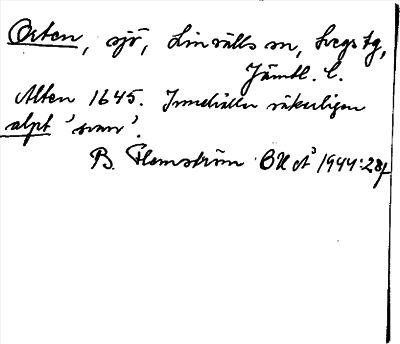 Orten, sjö, Linsälls sn, Svegs tg,
Jämtl. l.
Alten 1645. Innehåller säkerligen
alpt 'svan'.
B. Flemström OUÅ 1944:28f